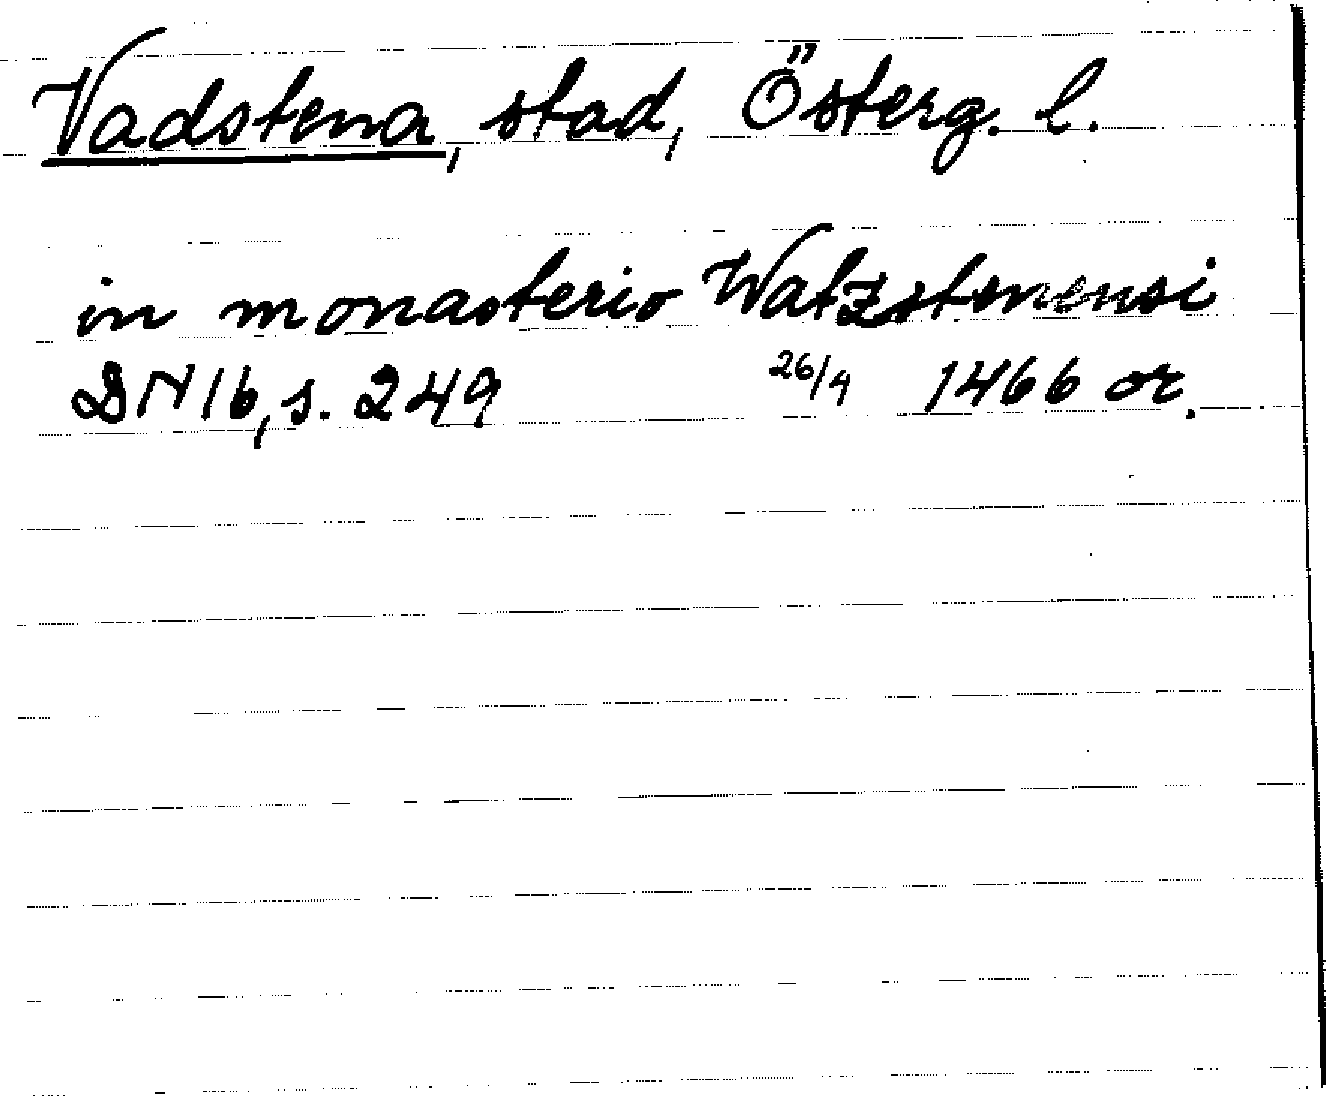 Vadstena, stad, Österg. l.
in monasterio Watzstenensi
DN 16, s. 249 26/4 1466 or.